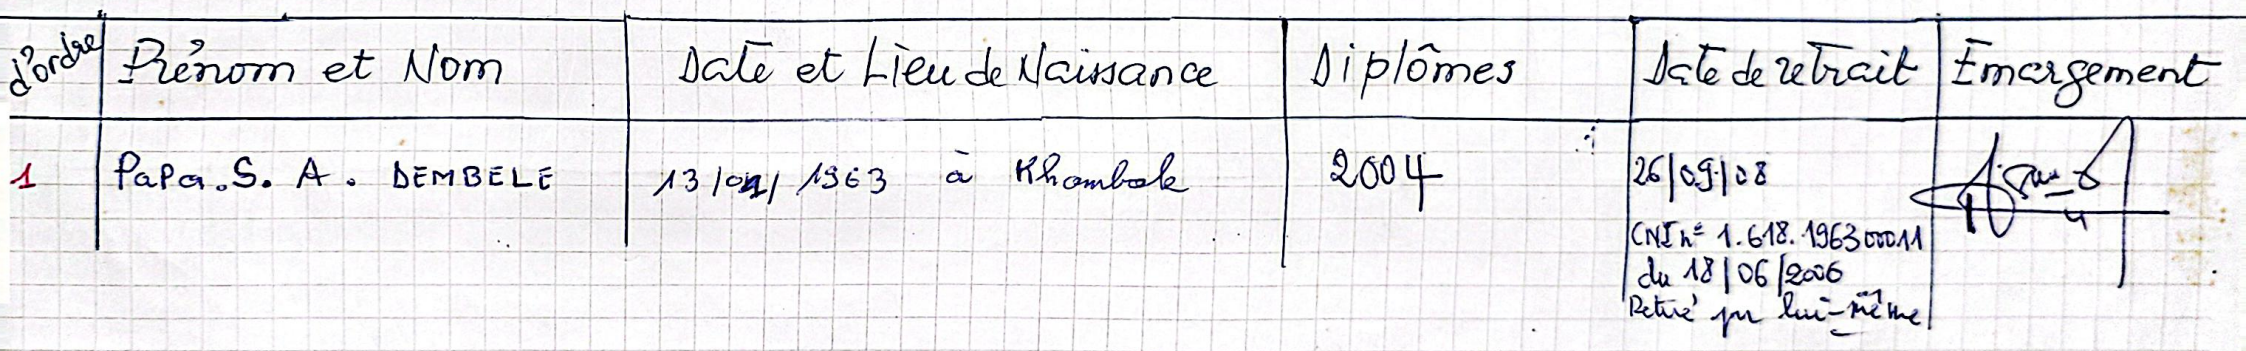 d'ordre Prénom et Nom Date et Lieu de Naissance Diplômes Date de retrait Emargement
1 Papa. S. A. DEMBELE 13/ 1963 à Khombole 2004 26/09/08
CNI n° 1.618.196300011
du 18/06/2006
Retiré par lui-même